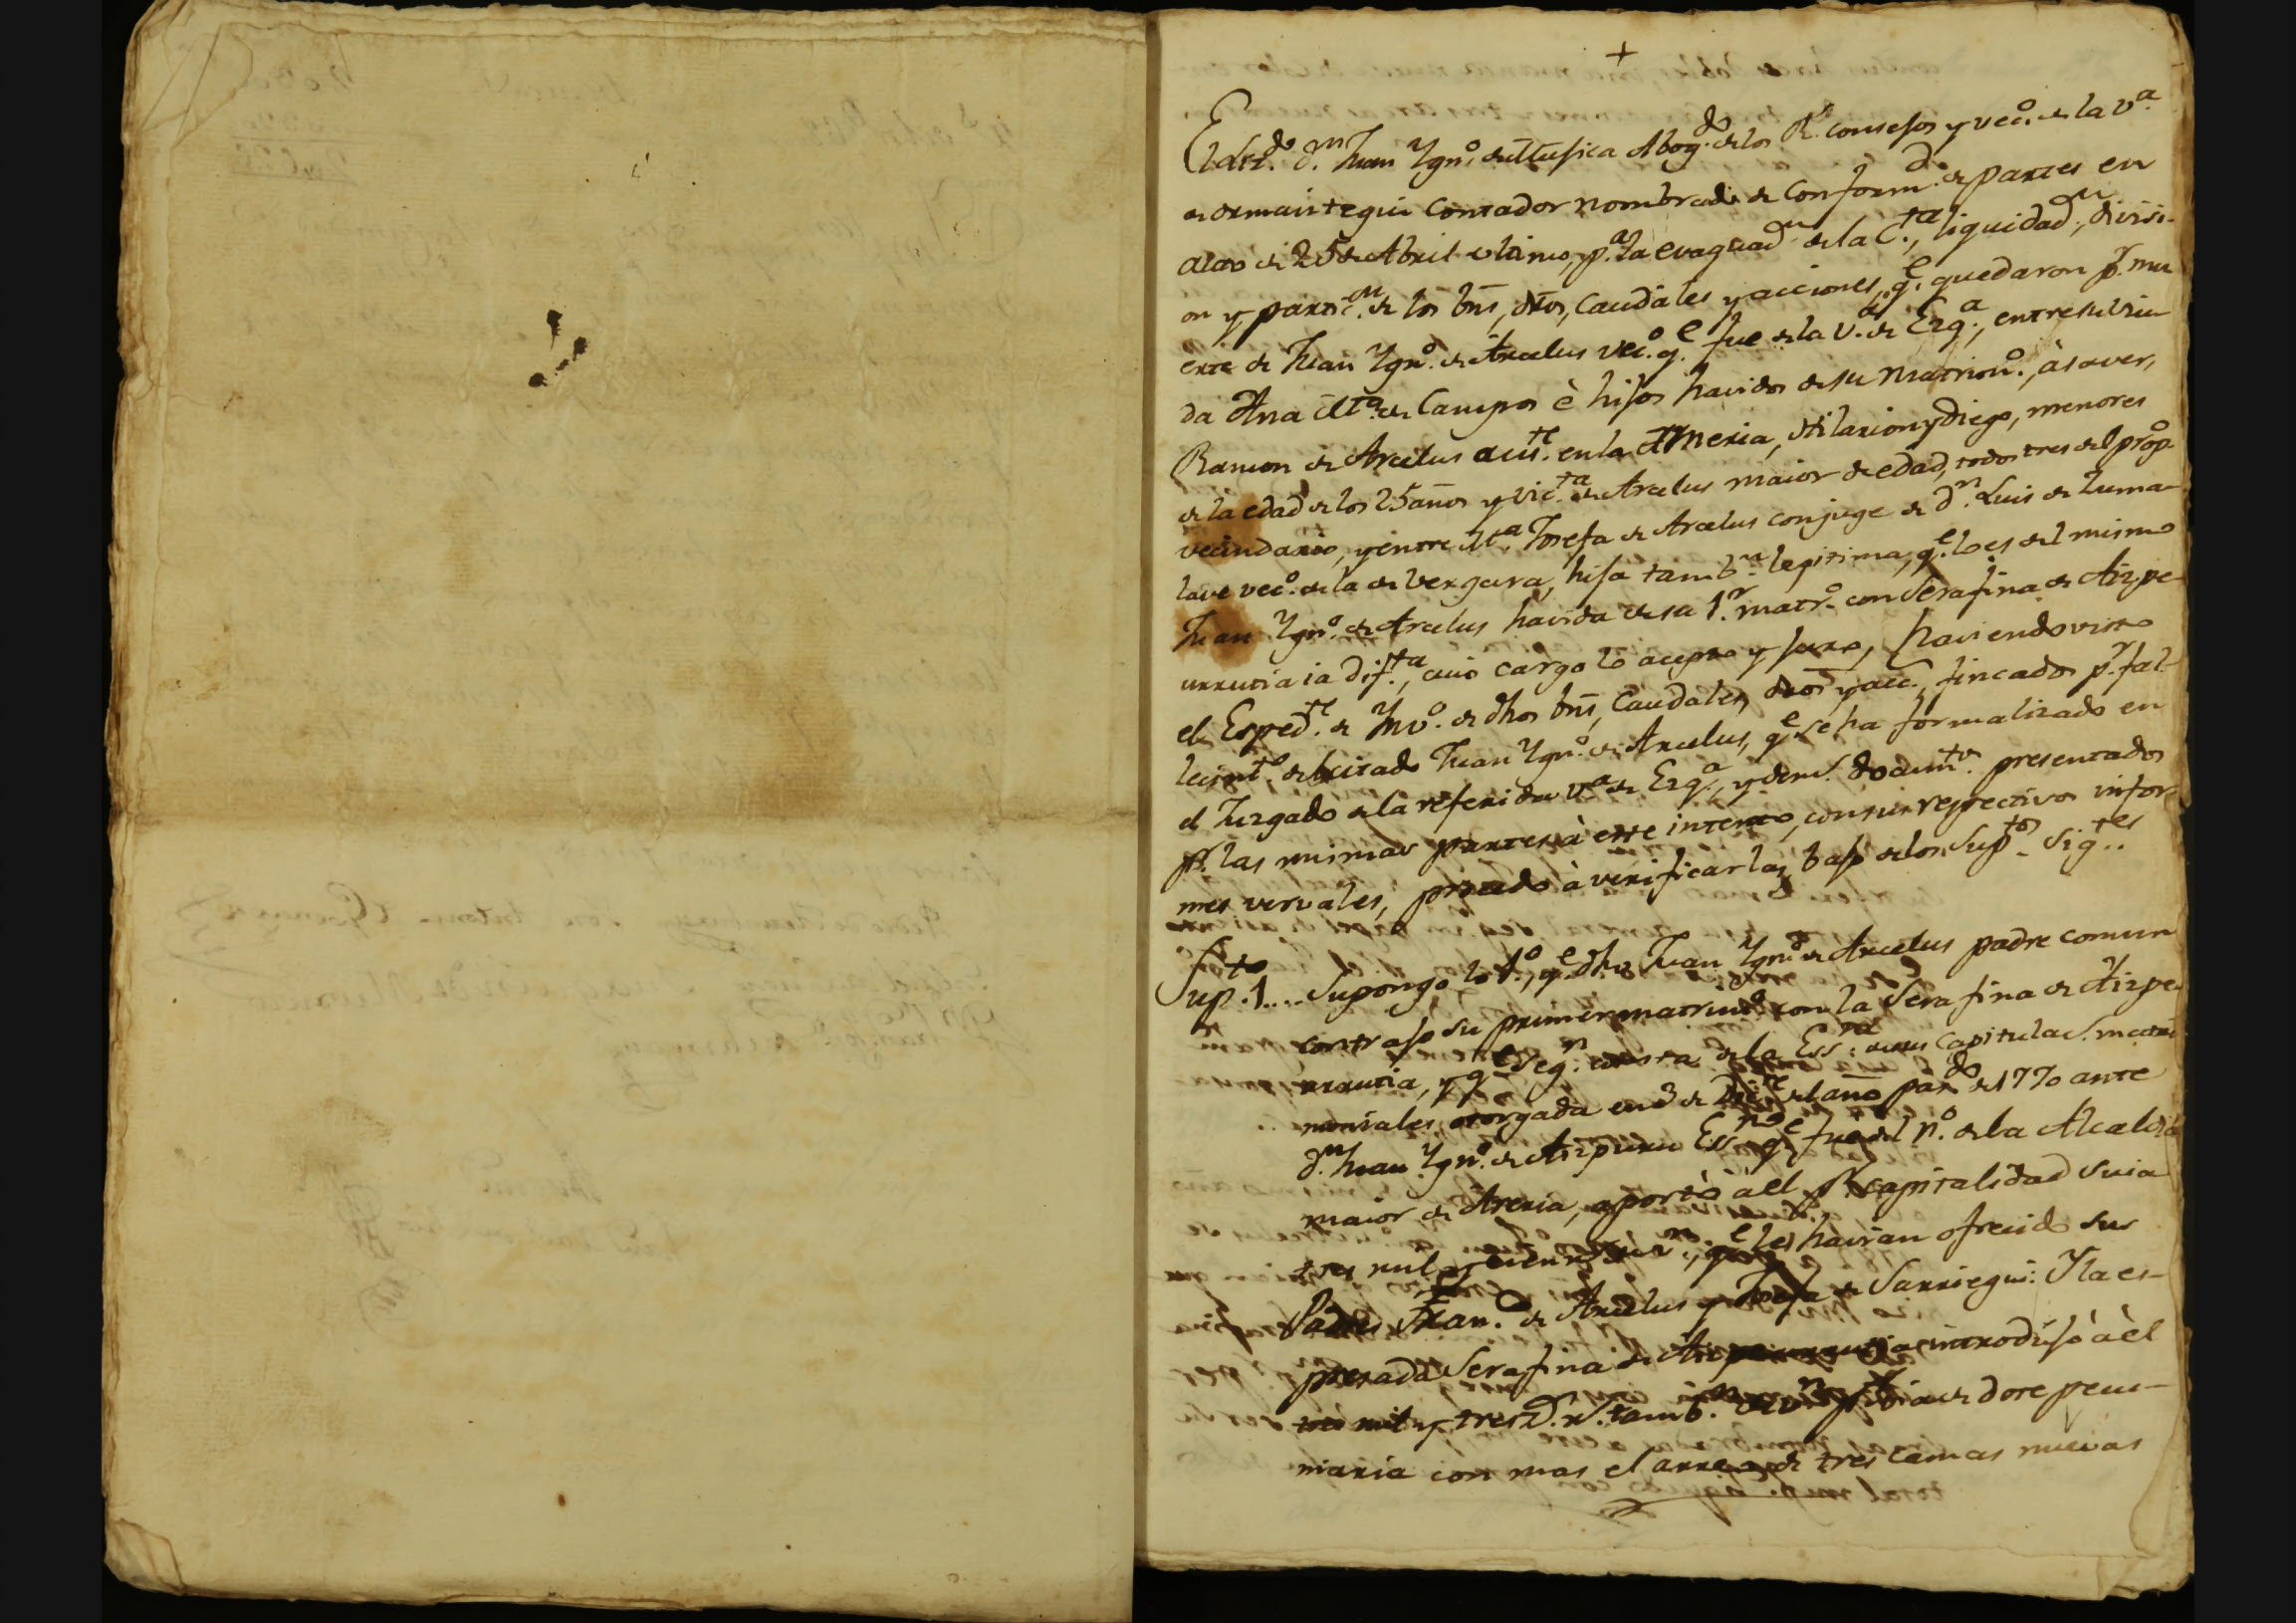 +
El Liz.do D.n Juan Ygn.o de Abog.do de los R.s consejos y vec.o de la V.a
de ormaiztegui contador nombrado de conform.d de partes en
auto de 25 de Abril ultimo, p.a la evaquac.n de la C.ta, liquidac.n, divisi-
on y partic.on de los bns, dros, caudales y acciones, q.e quedaron p.r mu
erte de Juan Ygn.o de Arcelus vec.o q.e fue de la V.a de Ezq.a, entre su biu
da Ana M.a de Campos è hijos havidos de su matrim.o, à saver,
Ramon de Arcelus aus.te en la America, Hilarion y Diego, menores
de la edad de los 25 años y Vic.ta de Arcelus maior de edad, todos tres del prop.o
vecindario, y entre M.a Josefa de Arcelus conjuge de D.n Luis de Zuma-
lave vec.o de la de Vergara, hija tamb.n legitima, q.e lo es del mismo
Juan Ygn.o de Arcelus havida de su 1.r matr.o con Serafina de Aizpe-
urrutia ia dif.ta, cuio cargo lo acepto y juro, haviendo visto
el Exped.te de Ynv.o de dhos bns, Caudales, dros y acc.s, fincados p.r fal-
lecim.to del citado Juan Ygn.o de Arcelus, q.e se ha formalizado en
el Juzgado de la referida V.a de Ezq.a, y dem.s docum.tos presentados
p.r las mismas partes à este intento, con sus respectivos infor-
mes vervales, procedo à verificarlas bajo de los Sup.tos Sig.tes
Sup.to 1.... Supongo lo 1.o, q.e dho Juan Ygn.o de Arcelus padre comun
contrajo su primer matrim.o con la Serafina de Aizpe
urrutia, y q.e seg.n consta de la Ess.ra de sus capitulac.s matri
moniales, otorgada en 3 de Dic.re del año pas.do de 1770 ante
D.n Juan Ygn.o de Aizpuru Ess.no q.e fue del n.o de la Alcaldia
maior de Areria, aportò à èl p.r capitalidad suia
tres mil y v.n, q.e les havian ofrecido sus
Padres Fran.co de Arcelus y Josefa de Sarriegui: Y la es-
presada Serafina de Aizpeurrutia introdujò à èl
tres mil y tres D.s tamb.n de v.n p.r via de dote pecu-
niaria con mas el arreo de tres camas nuevas